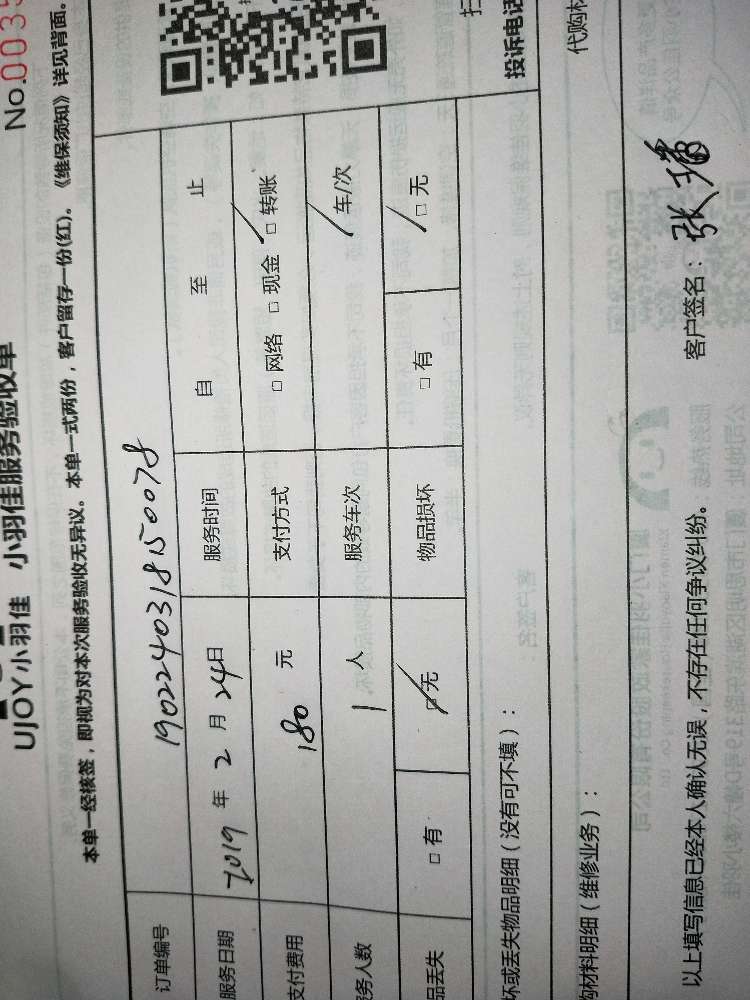 No.003
UJOY小羽佳 小羽佳服务验收单
本单一经核签，即视为对本次服务验收无异议。本单一式两份，客户留存一份(红)。《维保须知》详见背面。
订单编号 1902240318150078
服务日期 2019 年 2 月 24日 服务时间 自 至 止
支付费用 180 元 支付方式 □ 网络 □ 现金 □ 转账
务人数 1 人 服务车次 车/次
品丢失 □ 有 □ 无 物品损坏 □ 有 □ 无
投诉电话
坏或丢失物品明细（没有可不填）：
代购材
购材料明细（维修业务）：
以上填写信息已经本人确认无误，不存在任何争议纠纷。 客户签名：张